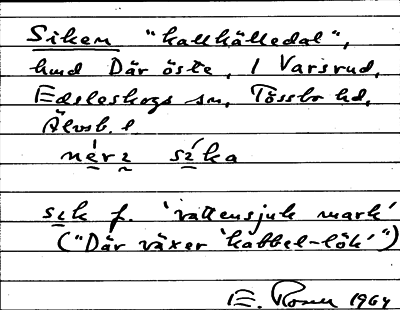 Siken "kallkälledal",
hmd Där öste, 1 Varsrud,
Edsleskogs sn, Tössbo hd,
Älvsb. l
nérɜ síka
sik f. 'vattensjuk mark'
("Där växer 'kabbel-lök'")
E. Rosell 1964